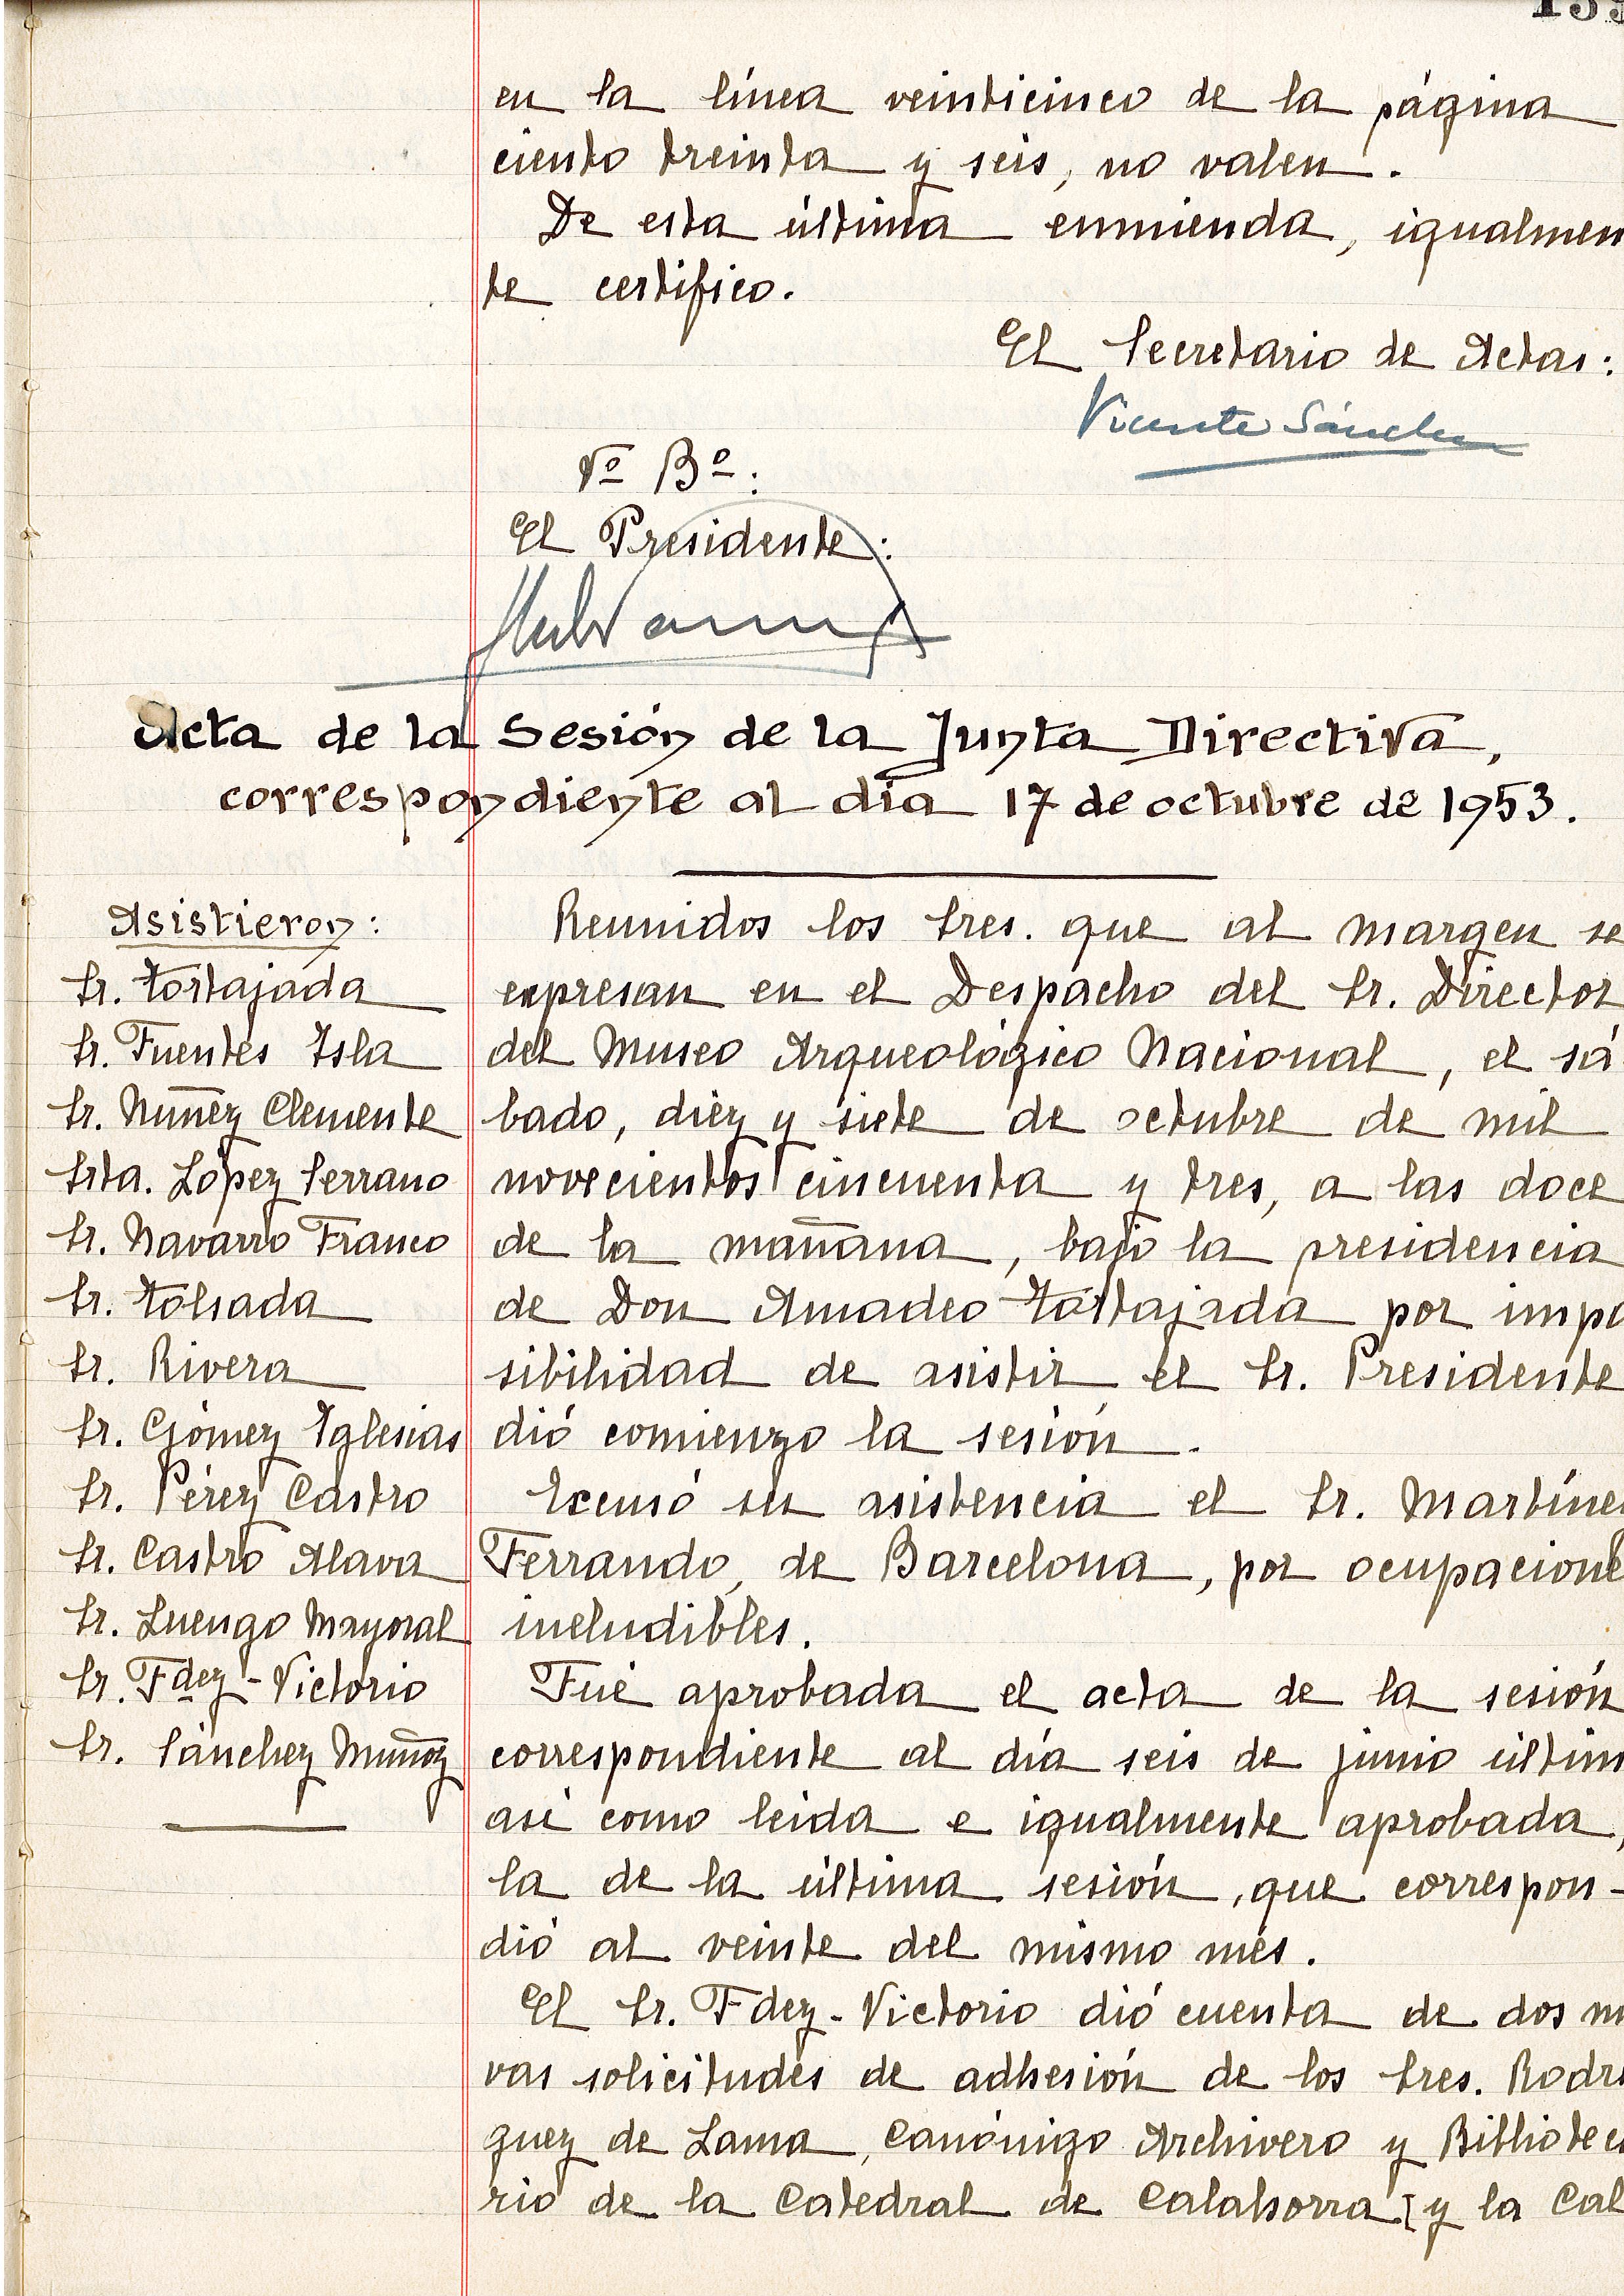 en la línea veinticinco de la página
ciento treinta y seis, no valen.
De esta última enmienda, igualmen
te certifico.
El Secretario de Actas:
Vicente Sánchez
Vº Bº:
El Presidente:
Acta de la Sesión de la Junta Directiva,
correspondiente al día 17 de octubre de 1953.
Asistieron:
Sr. Tortajada
Sr. Fuentes Isla
Sr. Núñez Clemente
Srta. López Serrano
Sr. Navarro Franco
Sr. Tolsada
Sr. Rivera
Sr. Gómez Iglesias
Sr. Pérez Castro
Sr. Castro Alava
Sr. Luengo Mayoral
Sr. Fdez-Victorio
Sr. Sánchez Muñoz
Reunidos los Sres. que al margen se
expresan en el Despacho del Sr. Director
del Museo Arqueológico Nacional, el sá
bado, diez y siete de octubre de mil
novecientos cincuenta y tres, a las doce
de la mañana, bajo la presidencia
de Don Amadeo Tortajada por impo
sibilidad de asistir el Sr. Presidente
dió comienzo la sesión.
Excusó su asistencia el Sr. Martíne
Ferrando, de Barcelona, por ocupacione
ineludibles.
Fué aprobada el acta de la sesión
correspondiente al día seis de junio últim
así como leida e igualmente aprobada,
la de la última sesión, que correspon-
dió al veinte del mismo més.
El Sr. Fdez-Victorio dió cuenta de dos nu
vas solicitudes de adhesión de los Sres. Rodrí
guez de Lama, Canónigo Archivero y Bibliotec
rio de la Catedral de Calahorra [y la Cal